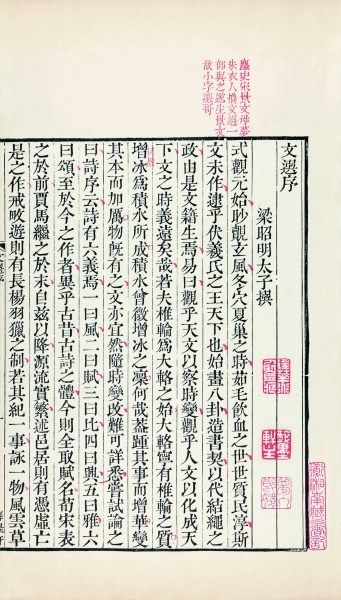 麈史宋景文母夢
朱衣人攜文選一
部與之遂生景文
故小字選哥
文選序
梁昭明太子撰
式觀元始眇覿玄風冬穴夏巢之時茹毛飲血之世世質民淳斯
文未作逮乎伏羲氏之王天下也始畫八卦造書契以代結繩之
政由是文籍生焉易曰觀乎天文以察時變觀乎人文以化成天
下文之時義遠矣哉若夫椎輪爲大輅之始大輅寧有椎輪之質
增冰爲積水所成積水曾微增冰之凜何哉蓋踵其事而增華變
其本而加厲物旣有之文亦宜然隨時變改難可詳悉嘗試論之
曰詩序云詩有六義焉一曰風二曰賦三曰比四曰興五曰雅六
曰頌至於今之作者異乎古昔古詩之體今則全取賦名荀宋表
之於前賈馬繼之於末自茲以降源流實繁述邑居則有憑虛亡
是之作戒畋遊則有長楊羽獵之制若其紀一事詠一物風雲草